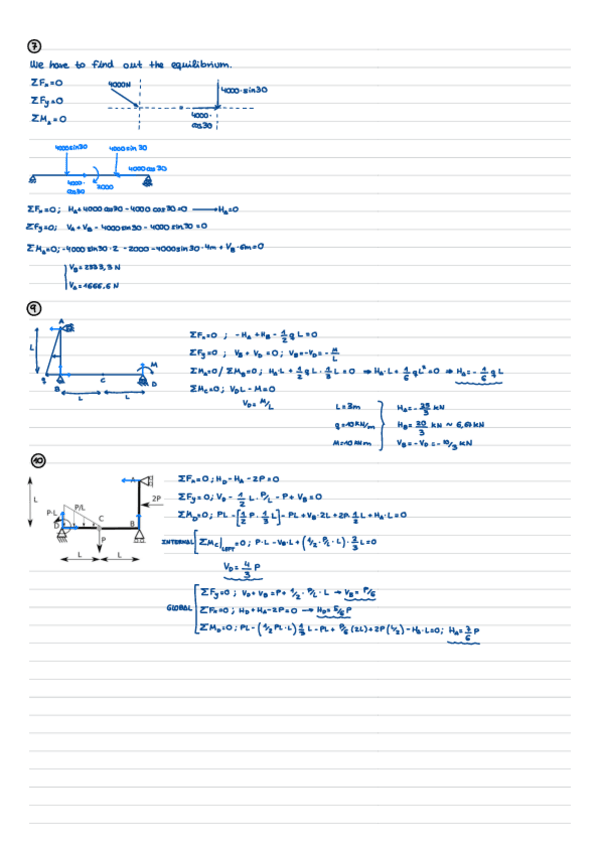 7
We have to find out the equilibrium.
ΣFx=0
ΣFy=0
ΣMA=0
4000N
4000·sin30
4000·
cos30
4000sin30
4000 sin 30
4000 cos 30
4000·
cos30
2000
ΣFx=0; HA+4000 cos30 - 4000 cos 30=0 → HA=0
ΣFy=0; VA+VB - 4000 sin30 - 4000 sin 30=0
ΣMA=0; -4000 sin30·2 - 2000 - 4000 sin 30·4m + VB·6m=0
VB=2333,3 N
VA=1666,6 N
9
A
L
q
B
C
M
D
L
L
ΣFx=0 ; -HA+HB-1/2 q L=0
ΣFy=0 ; VB+VD=0; VB=-VD=-M/L
ΣMA=0/ΣMB=0; HA·L+1/2 q L·1/3 L=0 → HA·L+1/6 qL²=0 → HA=-1/6 q L
ΣMC=0; VD L - M=0
VD=M/L
L=3m
q=10 KN/m
M=10 KN m
HB=20/3 KN ~ 6,67 KN
VB=-VD=-10/3 KN
10
L
P·L
D
P/L
C
P
B
A
2P
L
L
ΣFx=0; HD-HA-2P=0
ΣFy=0; VD-1/2 L·P/L-P+VB=0
ΣMD=0; PL-[1/2 P·1/3 L]-PL+VB·2L+2P·1/2 L+HA·L=0
INTERNAL [ΣMC|LEFT=0; P·L-VD·L+(1/2·P/L·L)·2/3 L=0
VD=4/3 P
GLOBAL
ΣFy=0; VD+VB=P+1/2·P/L·L → VB=P/6
ΣFx=0; HD+HA-2P=0 → HD=5/6 P
ΣMD=0; PL-(1/2 PL·L)1/3 L-PL+P/6 (2L)+2P(L/2)-HA·L=0; HA=7/6 P